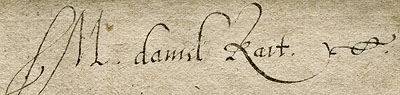 M. daniel Rait.